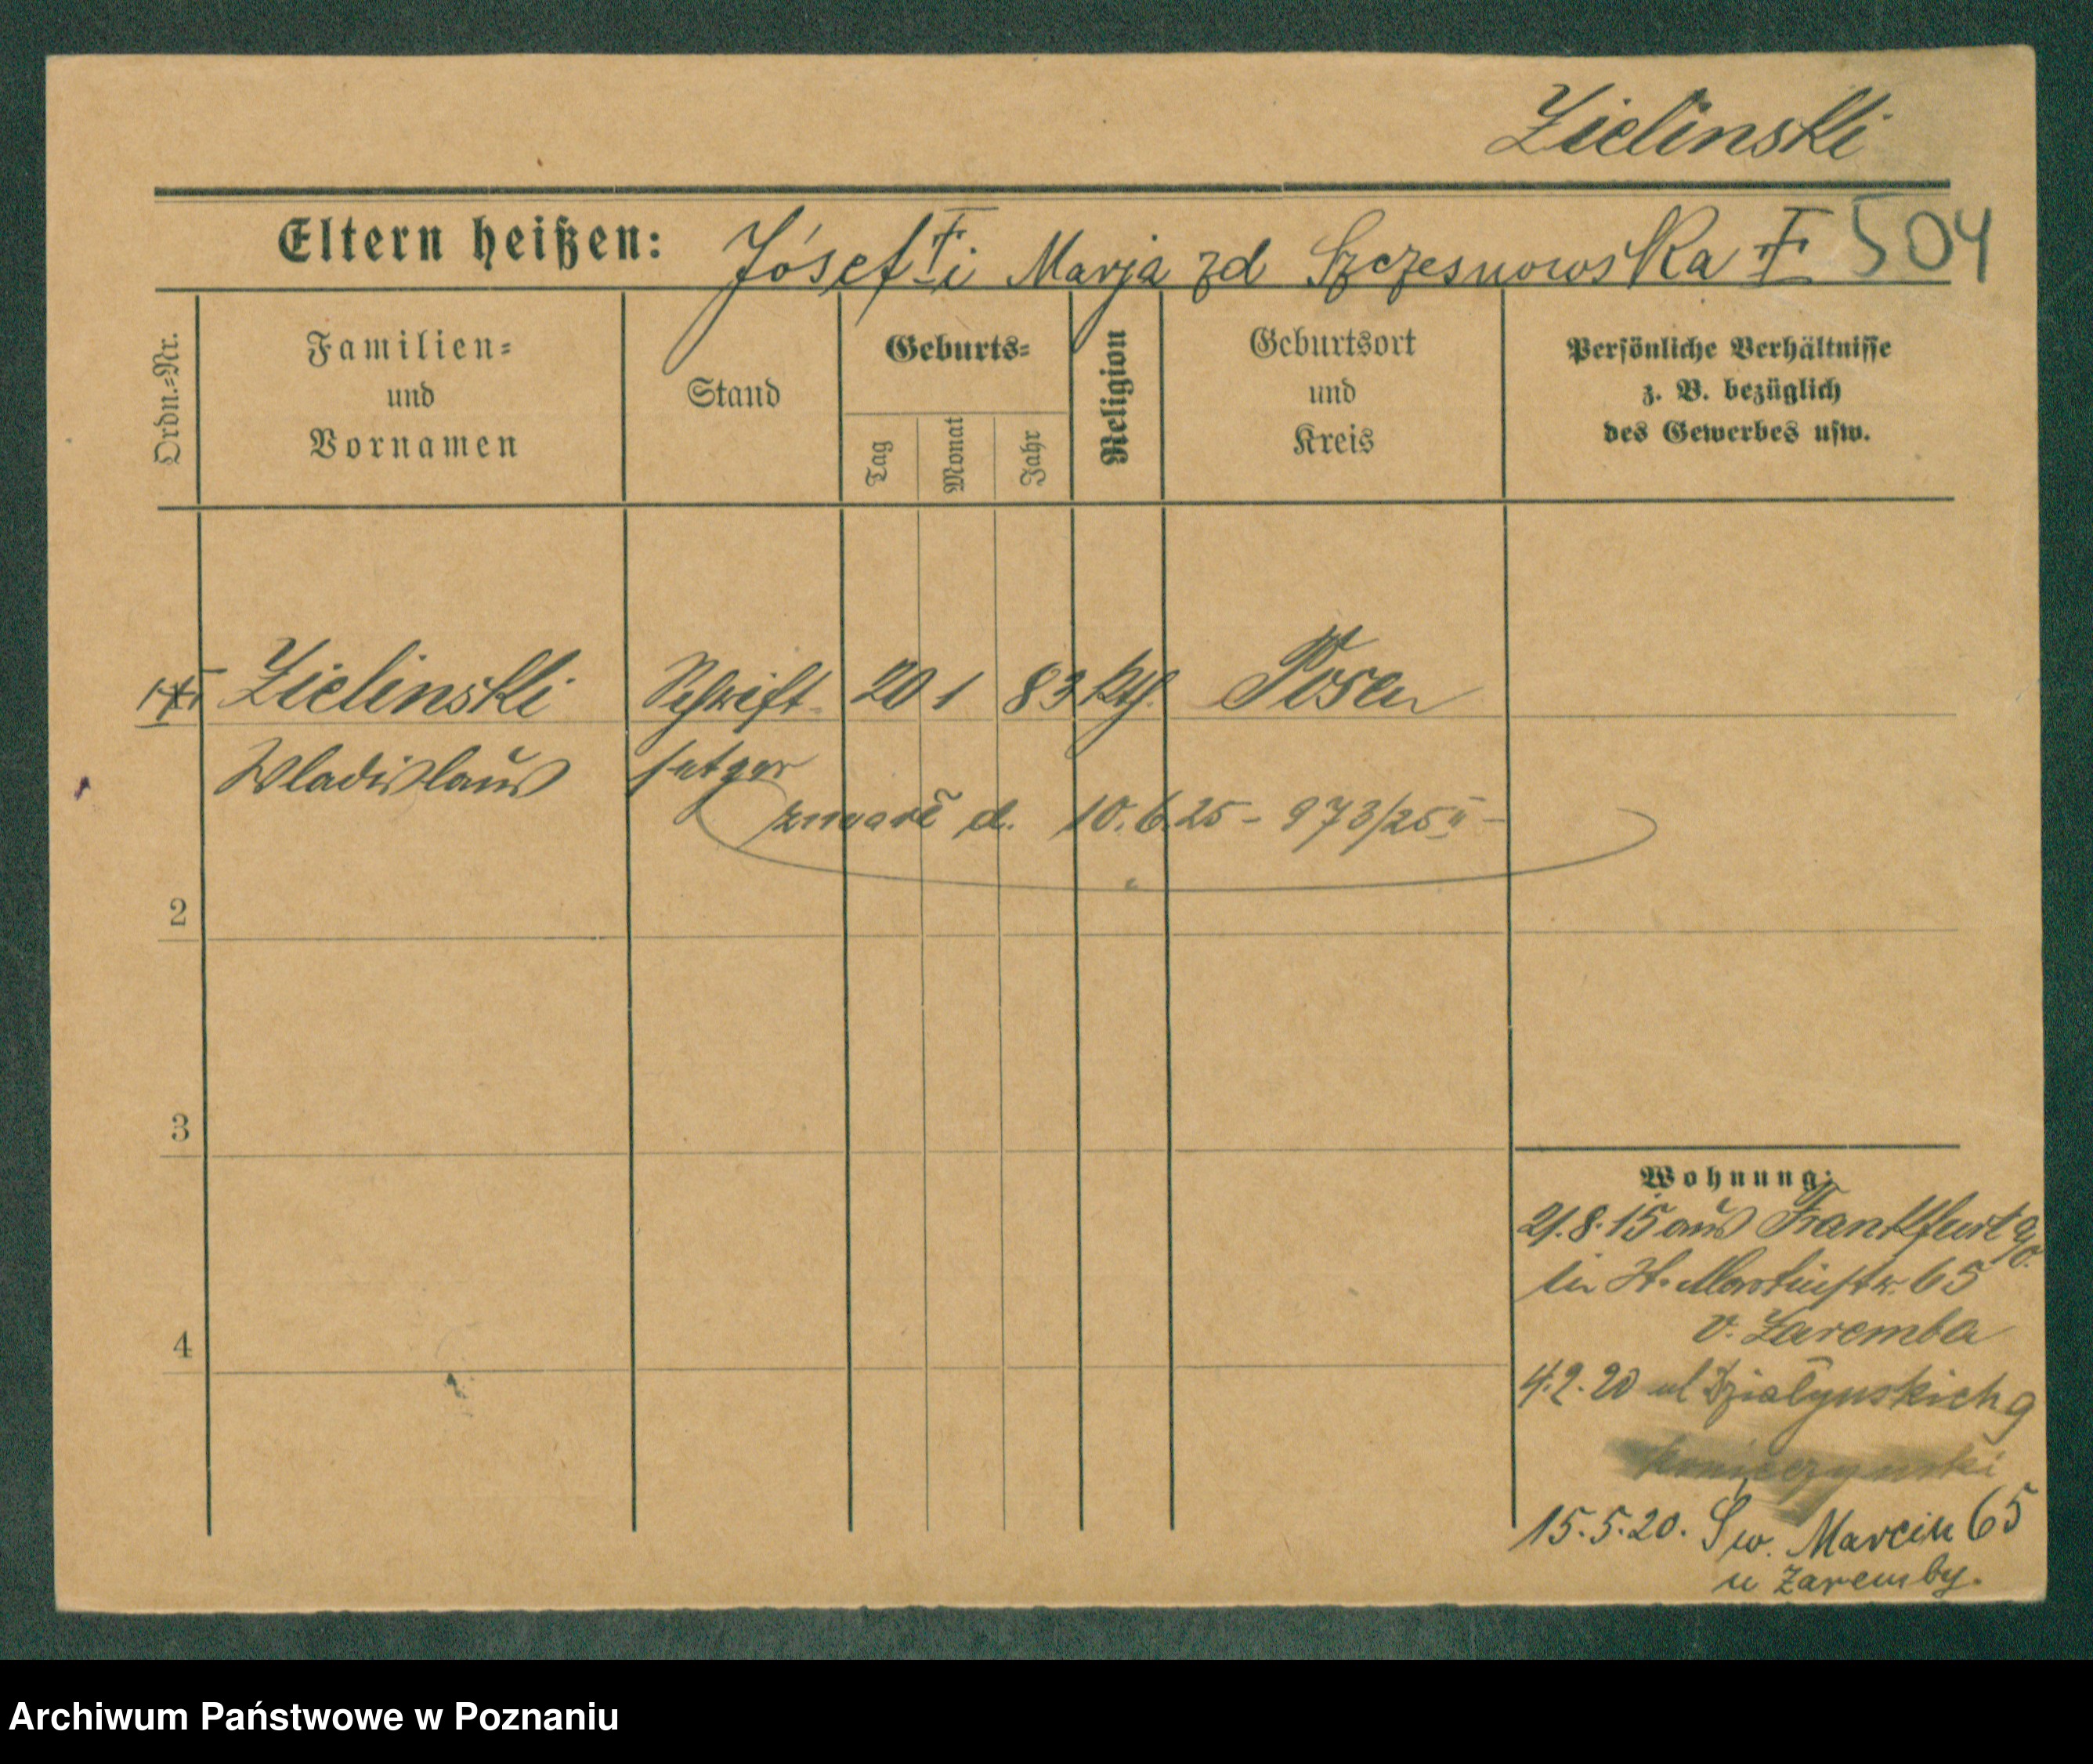 Zielinski
Eltern heißen: Józef † i Marja zd Szczesnowska † 504
Ordn.=Nr.
Familien=
und
Vornamen
Stand
Geburts=
Tag
Monat
Jahr
Religion
Geburtsort
und
Kreis
Persönliche Verhältnisse
z. B. bezüglich
des Gewerbes usw.
1 † Zielinski Schrift- 20 1 83 kth. Posen
Wladislaus setzer
zmarł d. 10.6.25 - 973/25 II -
2
3
4
Wohnung:
21.8.15 aus Frankfurt a/O.
in St. Martinstr. 65
v. Zaremba
4.2.20 ul Działyńskich 9
15.5.20. Św. Marcin 65
u Zaremby.
Archiwum Państwowe w Poznaniu